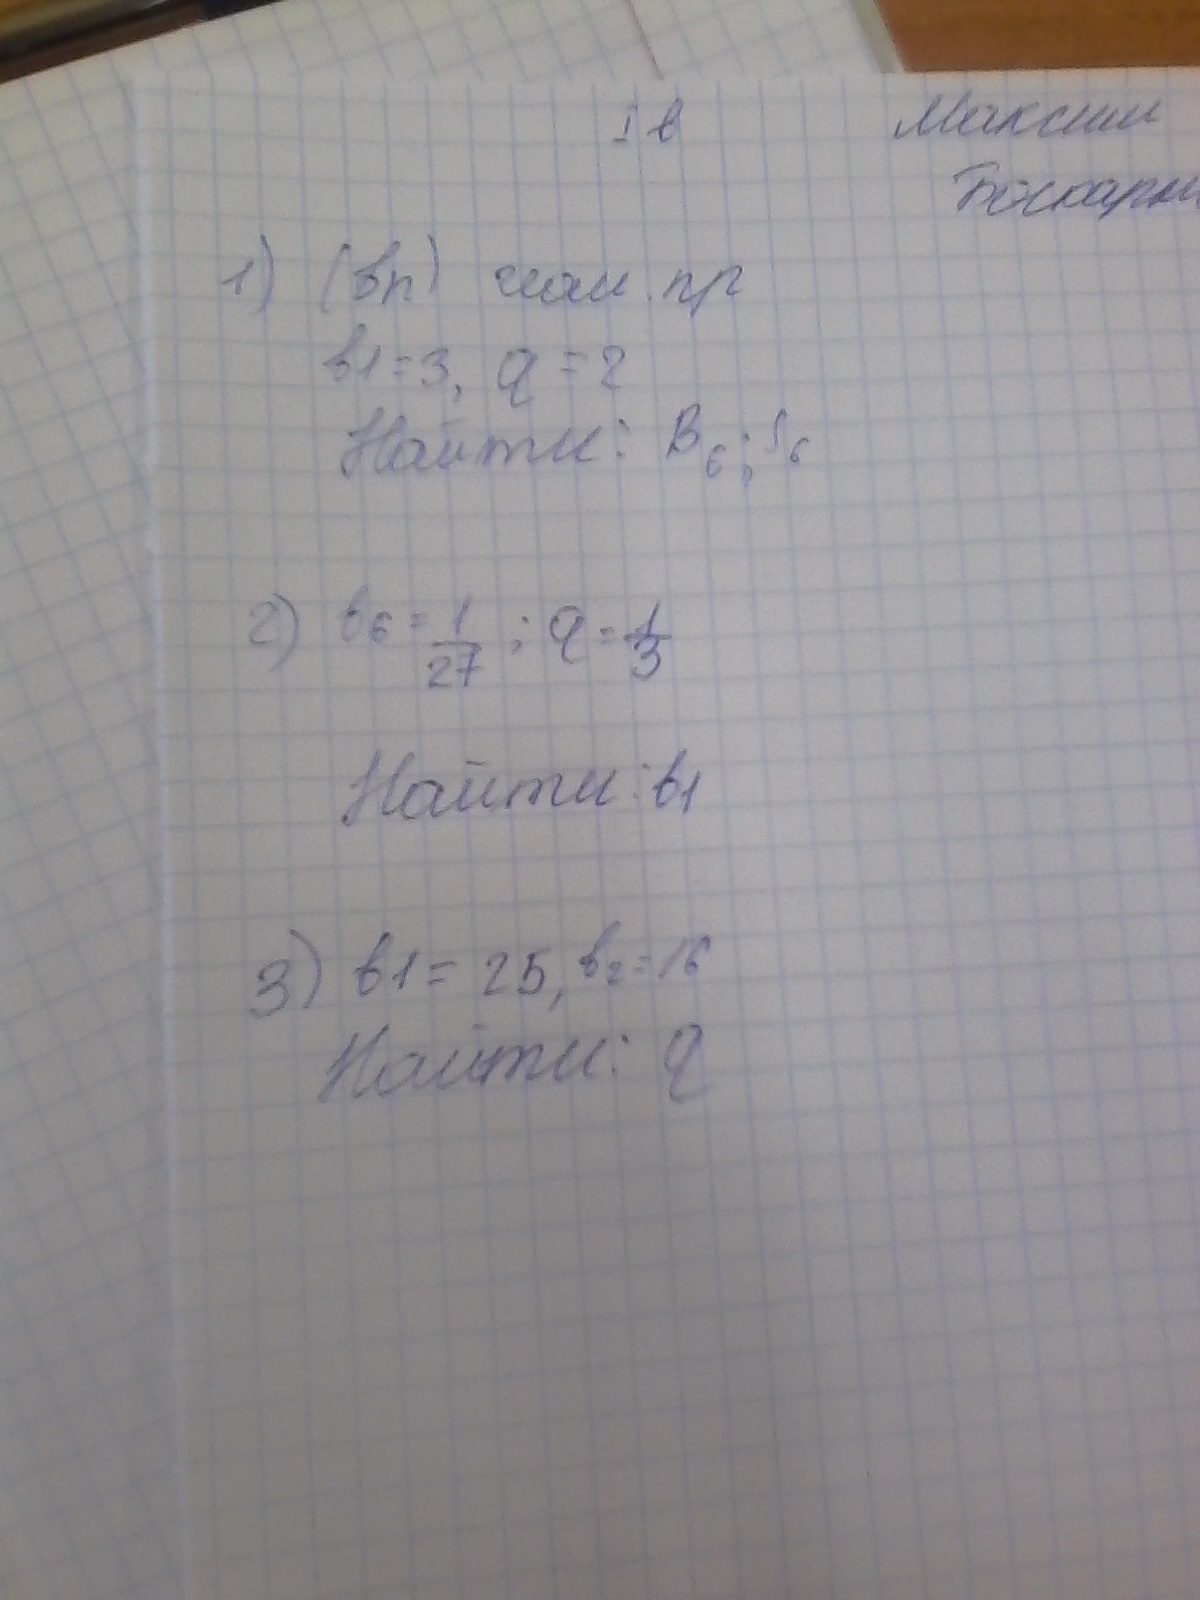 I в
Максим
1) (bn) геом. пр
b1=3, q=2
Найти: B6; S6
2) b6=1/27; q=1/3
Найти: b1
3) b1=25, b2=16
Найти: q